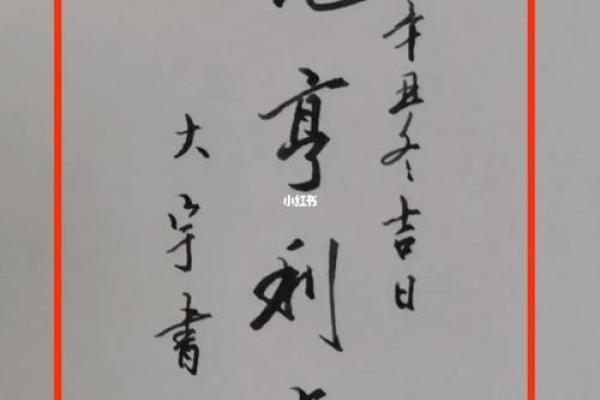 辛丑冬吉日
亨利
大宇書
小红书